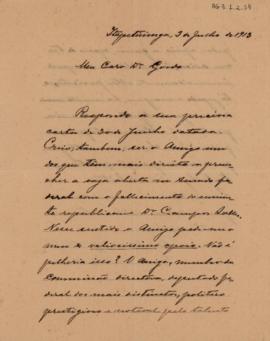 Itapetininga, 3 de Julho de 1913
Meu Caro Dr. Gordo
Respondo a sua preciosa
carta de 30 de Junho datada.
Creio, tambem, ser o Amigo um
dos que têm mais direito a preen-
cher a vaga aberta no Senado fe-
deral com o fallecimento do emi-
nente republicano Dr. Campos Salles.
Nesse sentido o Amigo pede-me o
meu e valiosissimo apoio. Não é
pilheria isso? O Amigo, membro da
commissão directora, deputado fe-
deral dos mais distinctos, politico
prestigioso e notavel pelo talento